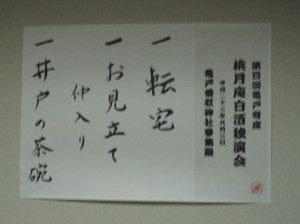 第四回亀戸寄席
桃月庵白酒独演会
平成二十三年九月三日
亀戸香取神社参集殿
一転宅
一お見立て
仲入り
一井戸の茶碗